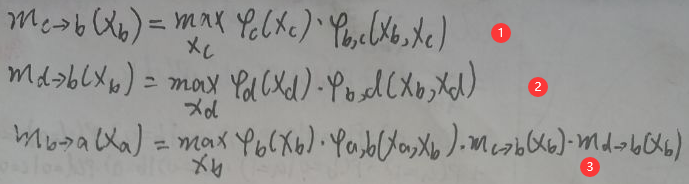 m_{c→b}(x_b) = max_{x_c} φ_c(x_c)·φ_{b,c}(x_b,x_c) 1
m_{d→b}(x_b) = max_{x_d} φ_d(x_d)·φ_{b,d}(x_b,x_d) 2
m_{b→a}(x_a) = max_{x_b} φ_b(x_b)·φ_{a,b}(x_a,x_b)·m_{c→b}(x_b)·m_{d→b}(x_b) 3